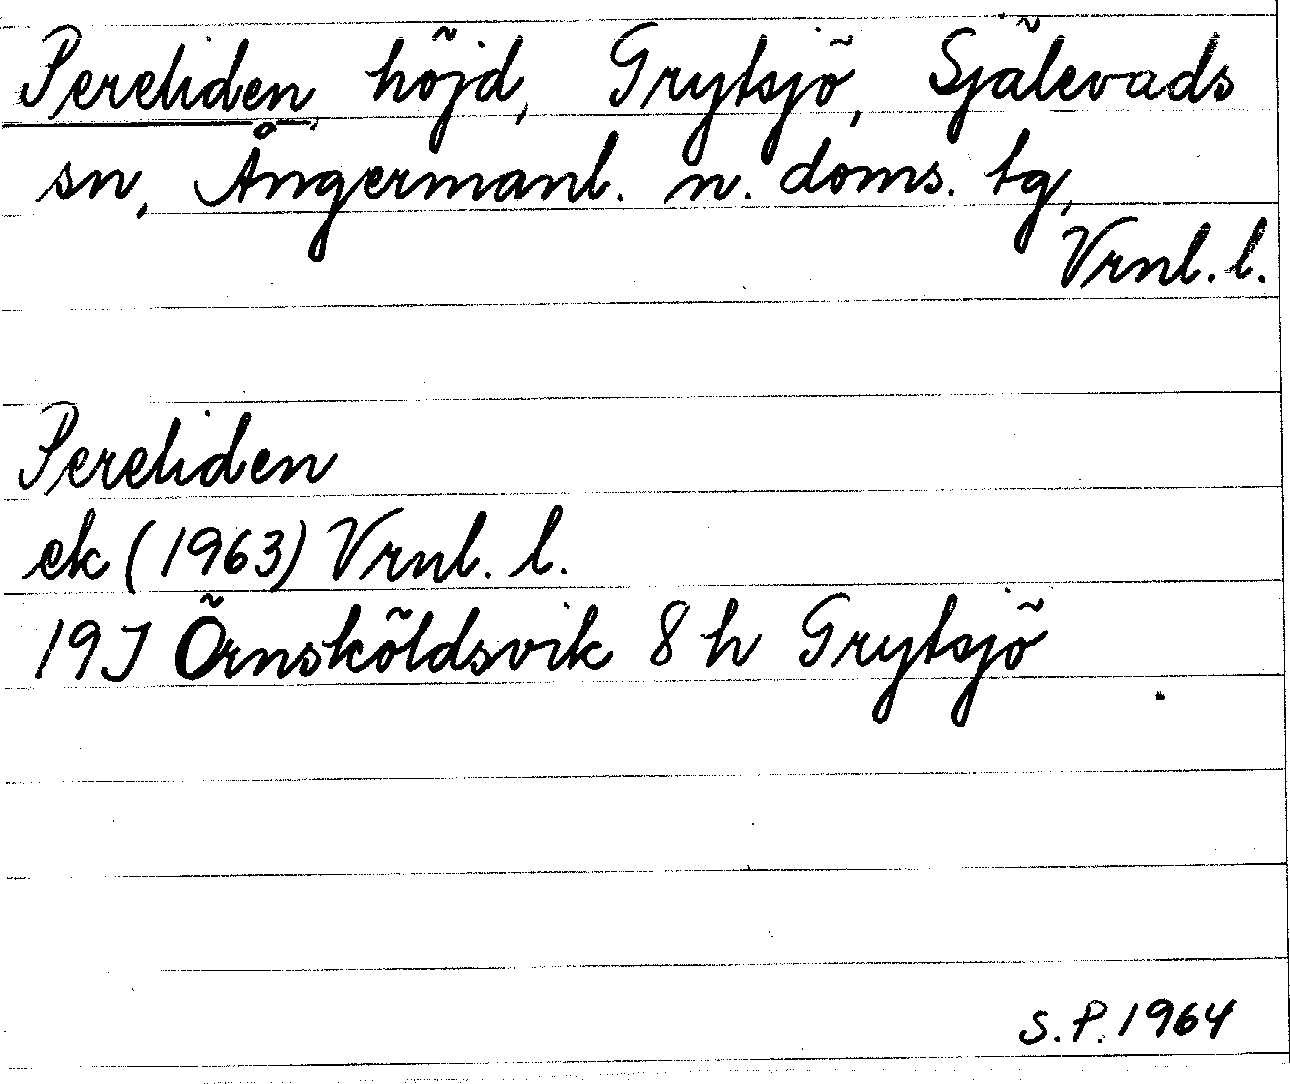 Pereliden, höjd, Grytsjö, Själevads
sn, Ångermanl. n. doms. tg,
Vrnl. l.
Pereliden
ek (1963) Vrnl. l.
19J Örnsköldsvik 8 h Grytsjö
S.P. 1964